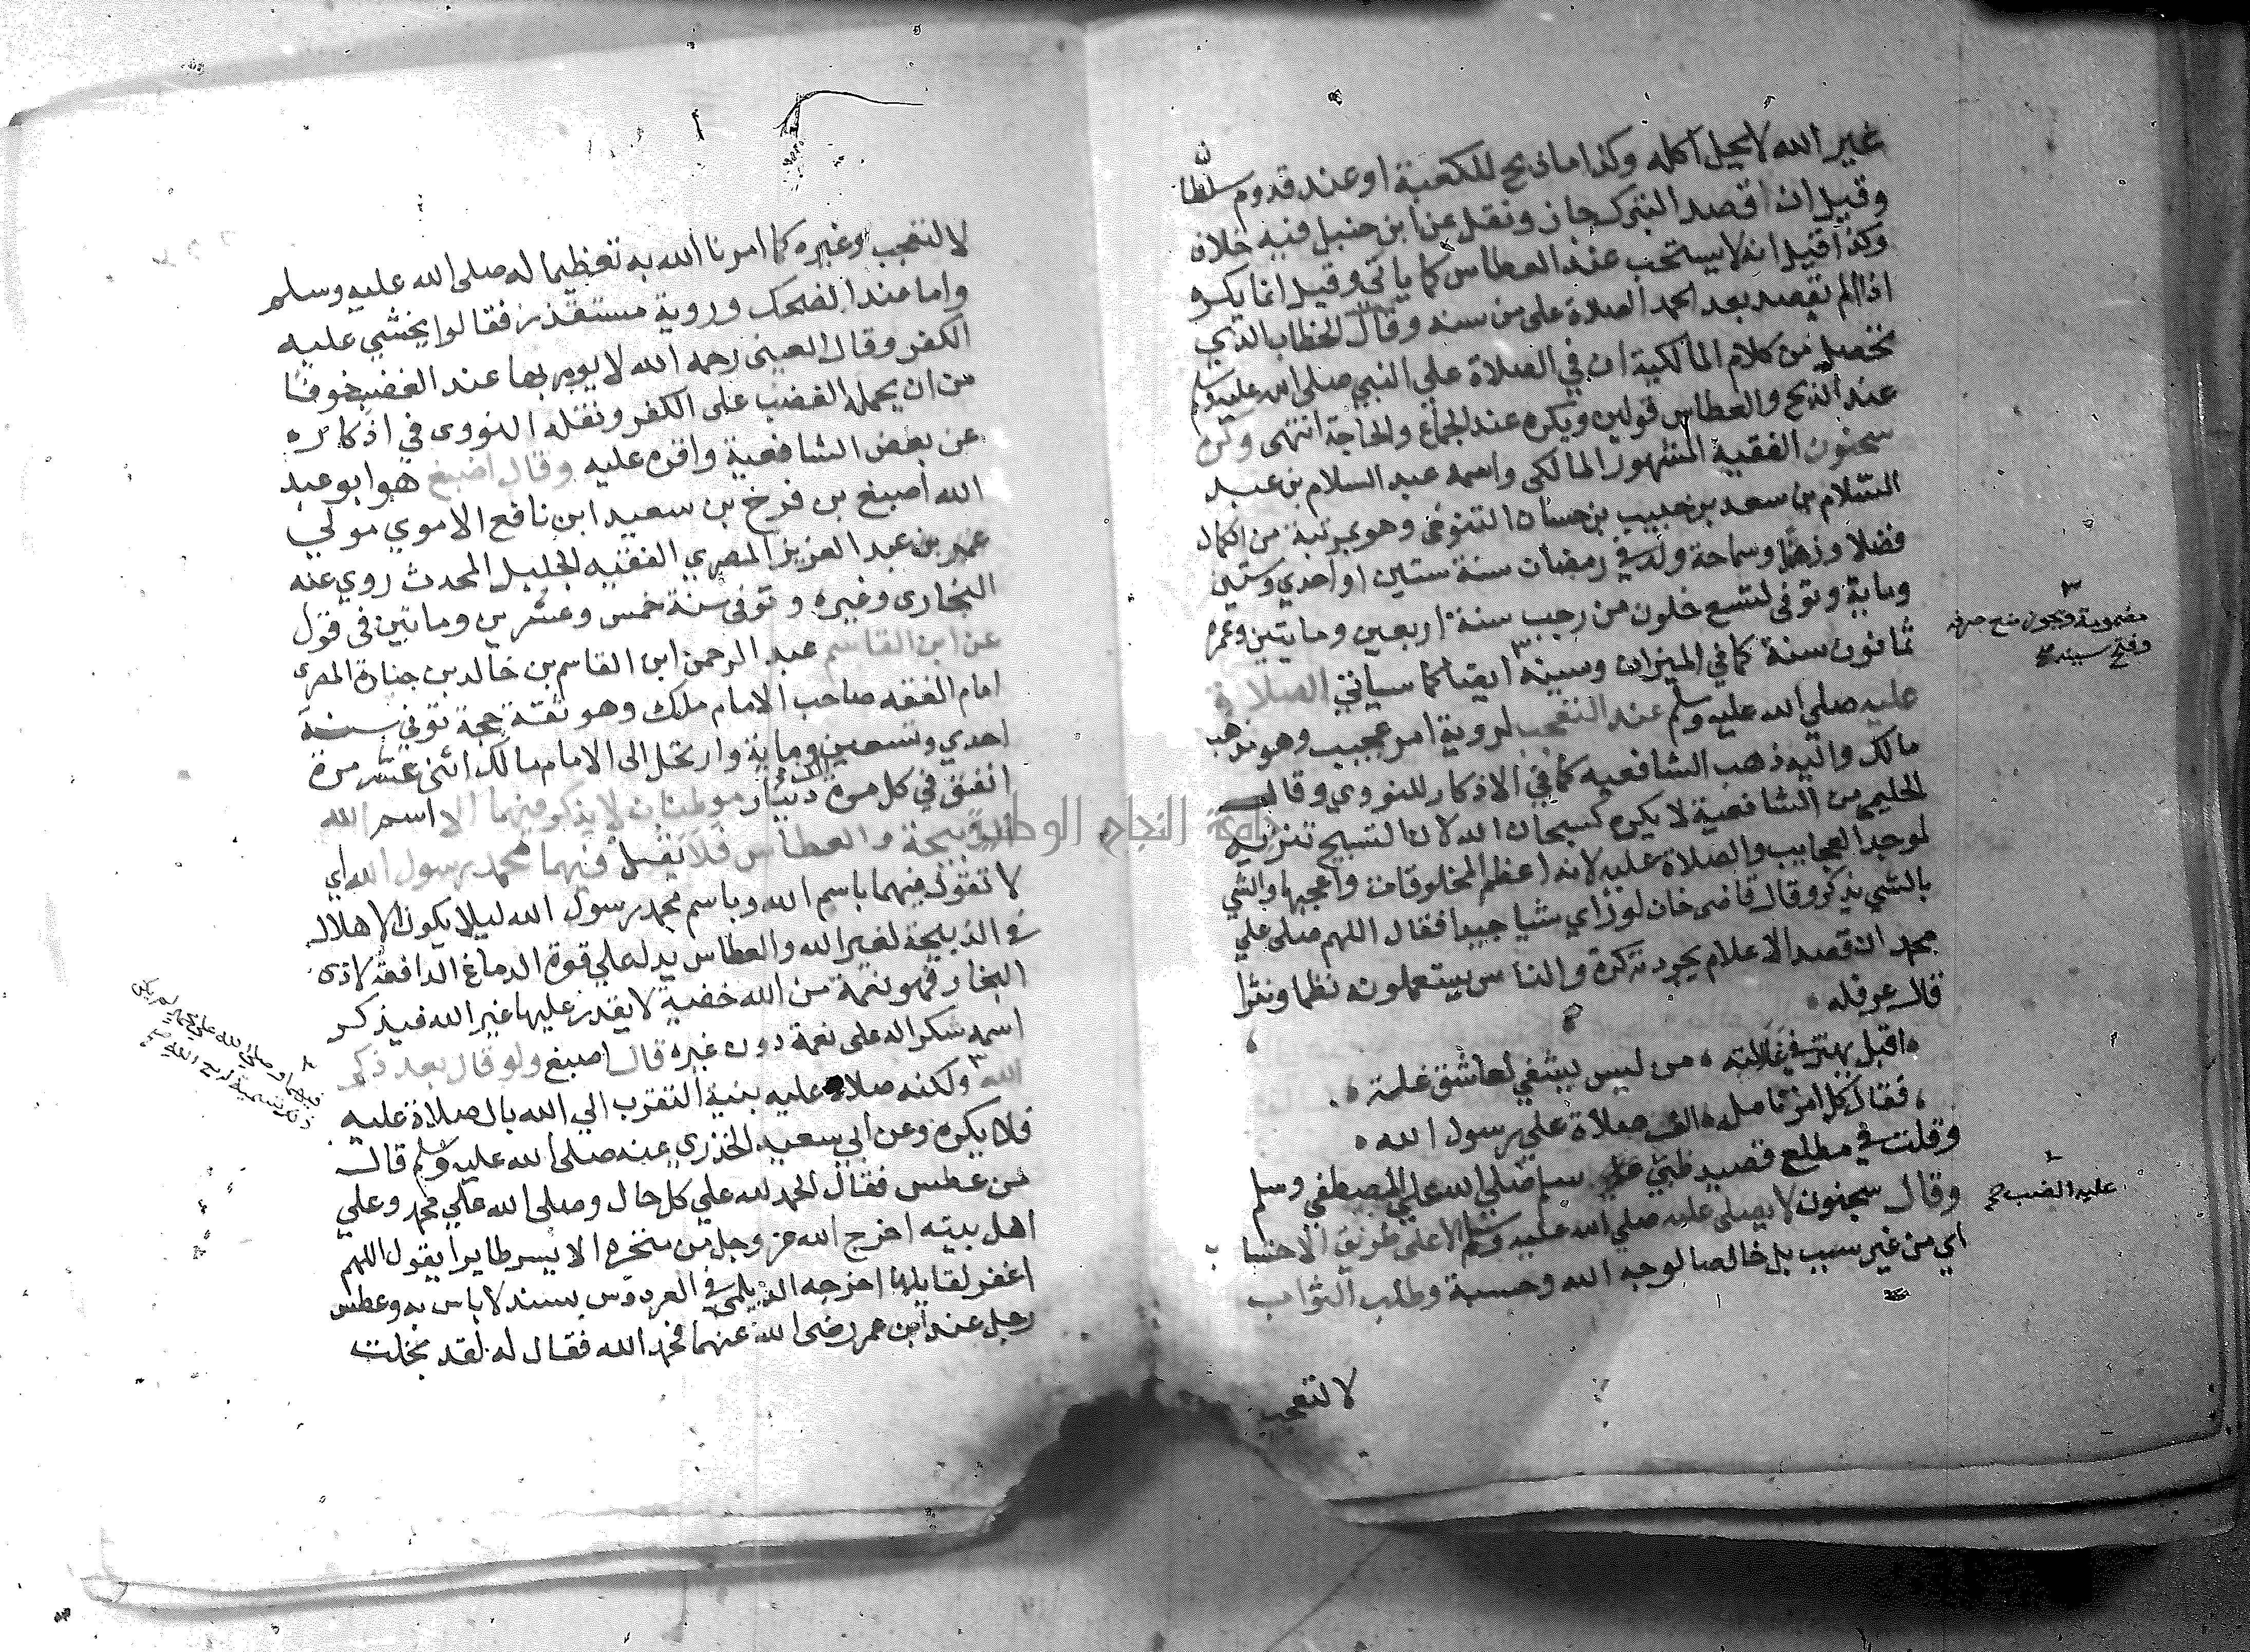 غير الله لا يحل اكله وكذا ما ذبح للكعبة او عند قدوم سلطا
وقيل ان قصد التبرك جاز ونقل عن ابن حنبل فيه خلاف
وكذا قيل انه لا يستحب عند العطاس كما ياتي وقيل انما يكره
اذا لم يقصد بعد الحمد الصلاة على من سنه وقال الخطاب الذي
تحصل من كلام المالكية ان في الصلاة علي النبي صلى الله عليه وسلم
عند الذبح والعطاس قولين ويكره عند الجماع والحاجة انتهى وكره
سحنون الفقيه المشهور المالكى واسمه عبد السلام بن عبد
السلام بن سعد بن حبيب بن حسان التنوخى وهو بمرتبة من الكمال
فضلا وزهدا وسماحة ولد في رمضان سنة ستين او احدي وستين
وماية وتوفى لتسع خلون من رجب سنة اربعين ومايتين وعمره
ثمانون سنة كما في الميزان وسينه ايضا كما سياتي الصلاة
عليه صلي الله عليه وسلم عند التعجب لروية امر عجيب وهو مذهب
مالك واليه ذهب الشافعيه كما في الاذكار للنووي وقال
الحليمي من الشافعية لا يكره كسبحان الله لان التسبيح تنزيه
لموجد العجايب والصلاة عليه لانه اعظم المخلوقات واعجبها والشي
بالشي يذكر وقال قاضى خان لو راي شيا عجيبا فقال اللهم صلى علي
محمد ان قصد الاعلام يجرد تركره والناس يستعملونه نظما ونثرا
قال عرفله
اقبل يهتز في غلالته من ليس يشفي لعاشق غلمته
فقال كل امرتامله الف صلاة علي رسول الله
وقلت في مطلع قصيد ظبي سلم صلى الله علي المصطفي وسلم
وقال سحنون لا يصلى عليه صلي الله عليه وسلم الا على طريق الاحتسا
ب
اي من غير سبب بل خالصا لوجه الله وحسبة وطلب الثواب
لا لتعجب
مضمومة ويجوز منع صرفه
وفتح سينه
عليه الضب
لا لتعجب وغيره كما امرنا الله به تعظيما له صلى الله عليه وسلم
واما عند الضحك وروية مستقذر فقالوا يخشي عليه
الكفر وقال العينى رحمه الله لا يومر بها عند الغضب خوفا
من ان يحمله الغضب على الكفر ونقله النووى في اذكاره
عن بعض الشافعية واقره عليه وقال اصبغ هو ابو عبد
الله اصبغ بن فرخ بن سعيد ابن نافع الاموي مولي
عمر بن عبد العزيز المصري الفقيه الجليل المحدث روي عنه
البخارى وغيره وتوفى سنة خمس وعشرين ومايتين فى قول
عن ابن القاسم عبد الرحمن ابن القاسم بن خالد بن جنادة المصرى
امام الفقه صاحب الامام ملك وهو ثقة حجة توفي سنة
احدي وتسعين وماية وارتحل الى الامام مالك اثنى عشر مرة
انفق في كل مرة الف دينار موطنان لا يذكر فيهما الا اسم الله
الذبيحة والعطاس فلا تقل فيهما محمد رسول الله اي
لا تقول فيهما باسم الله وباسم محمد رسول الله ليلا يكون الاهلال
في الذبيحة لغير الله والعطاس يدل علي قوة الدماغ الدافعة لاذى
البخار فهو نعمة من الله خفية لا يقدر عليها غير الله فيذكر
اسمه شكرا له على نعمة دون غيره قال اصبغ ولو قال بعد ذكر
الله ولكنه صلاه عليه بنية التقرب الي الله بالصلاة عليه
فلا يكره وعن ابي سعيد الخذري عنه صلى الله عليه وسلم قال
من عطس فقال الحمد لله علي كل حال وصلى الله علي محمد وعلي
اهل بيته اخرج الله عز وجل من منخره الايسر طايرا يقول اللهم
اغفر لقايلها اخرجه الديلمي في الفردوس بسند لا باس به وعطس
رجل عند ابن عمر رضى الله عنهما فحمد الله فقال له لقد بخلت
فيهما وصلي الله علي محمد لم يكن